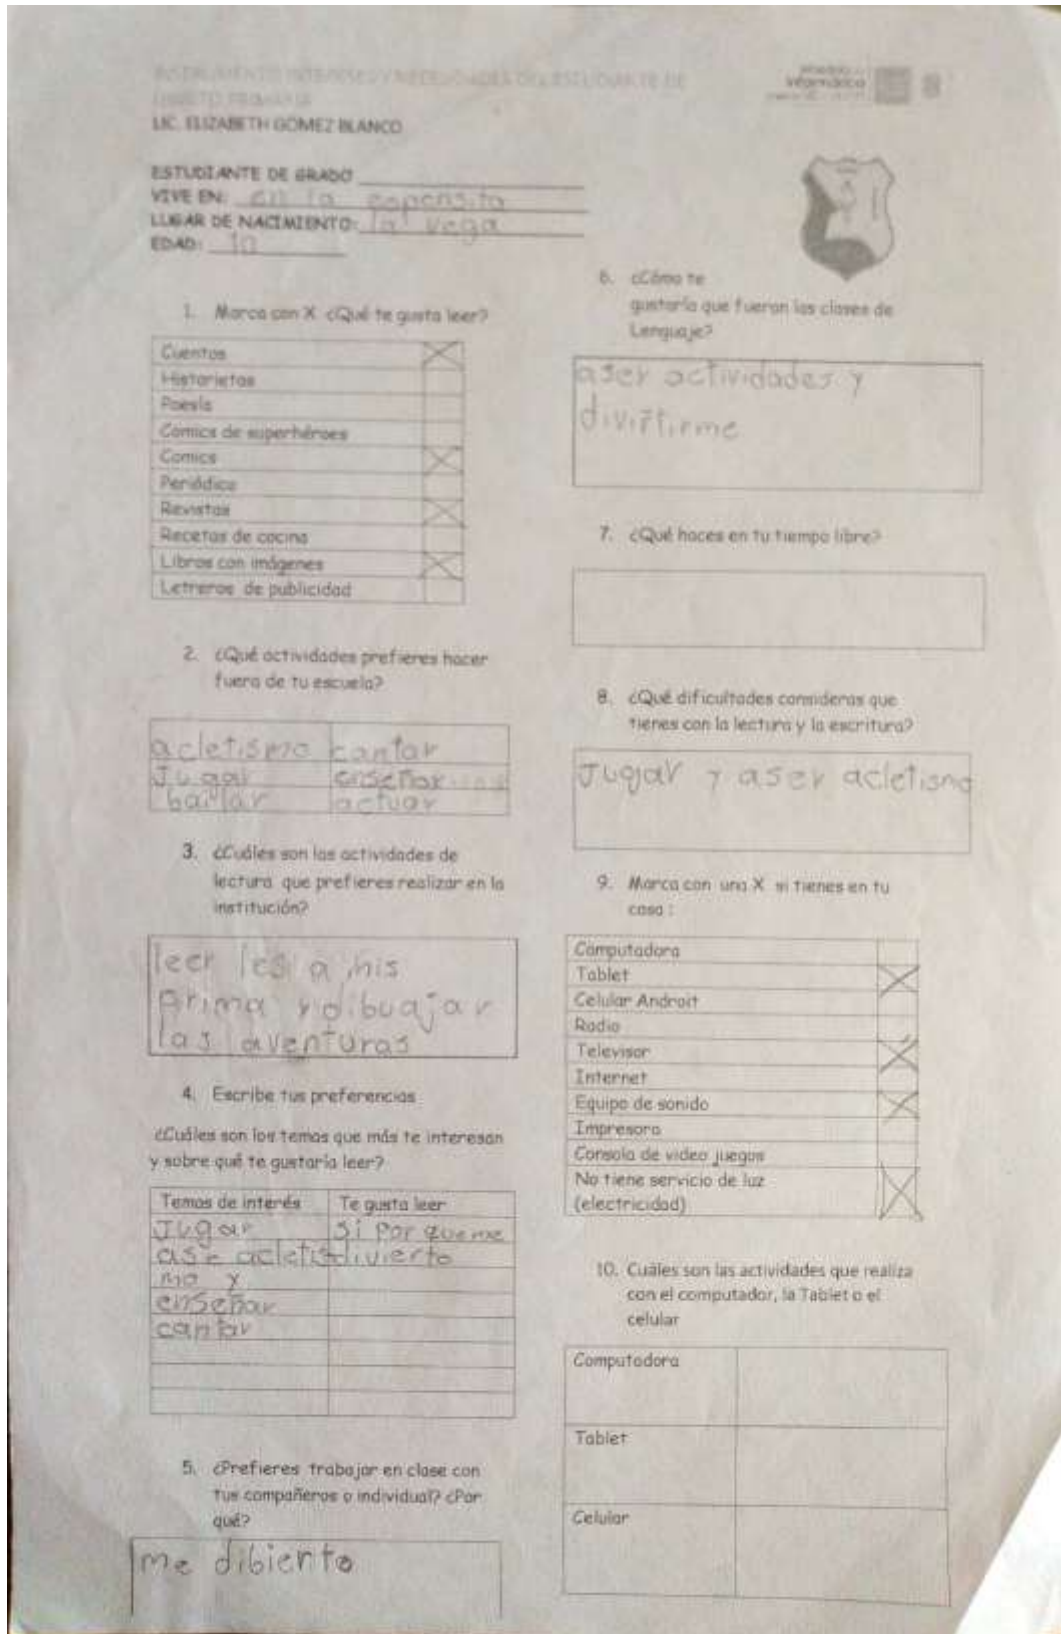 INSTRUMENTO INTERESES Y NECESIDADES DEL ESTUDIANTE DE
PRIMARIA
LIC. ELIZABETH GOMEZ BLANCO
informática
ESTUDIANTE DE GRADO
VIVE EN: en la
LUGAR DE NACIMIENTO: la vega
EDAD: 10
1. Marca con X ¿Qué te gusta leer?
Cuentos X
Historietas
Poesía
Comics de superhéroes
Comics X
Periódico
Revistas X
Recetas de cocina
Libros con imágenes X
Letreros de publicidad
2. ¿Qué actividades prefieres hacer
fuera de tu escuela?
acletismo cantar
Jugar enseñar
bailar actuar
3. ¿Cuáles son las actividades de
lectura que prefieres realizar en la
institución?
leer lesi a mis
Prima y dibuajar
las aventuras
4. Escribe tus preferencias
¿Cuáles son los temas que más te interesan
y sobre qué te gustaría leer?
Temas de interés Te gusta leer
Jugar Si Por que me
ase acletis divierto
mo y
enseñar
cantar
5. ¿Prefieres trabajar en clase con
tus compañeros o individual? ¿Por
qué?
me dibiento
6. ¿Cómo te
gustaría que fueran las clases de
Lenguaje?
aser actividades y
divirtirme
7. ¿Qué haces en tu tiempo libre?
8. ¿Qué dificultades consideras que
tienes con la lectura y la escritura?
Jugar y aser acletismo
9. Marca con una X si tienes en tu
casa :
Computadora
Tablet X
Celular Androit
Radio
Televisor X
Internet
Equipo de sonido X
Impresora
Consola de video juegos
No tiene servicio de luz
(electricidad) X
10. Cuáles son las actividades que realiza
con el computador, la Tablet o el
celular
Computadora
Tablet
Celular